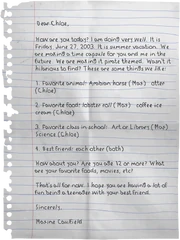 Dear Chloe,
How are you today? I am doing very well. It is
Friday, June 27, 2003. It is summer vacation. We
are making a time capsule for you and me in the
future. We are making it pirate themed. Wasn't it
hilarious to find? These are some things we like:
1. Favorite animal: Ambian horse (Max) - otter
(Chloe)
2. Favorite food: lobster roll (Max) - coffee ice
cream (Chloe)
3. Favorite class in school: Art or Library (Max)
Science (Chloe)
4. Best friend: each other (both)
How about you? Are you like 12 or more? What
are your favorite foods, movies, etc?
That's all for now. I hope you are having a lot of
fun being a teenager with your best friend.
Sincerely,
Maxine Caulfield